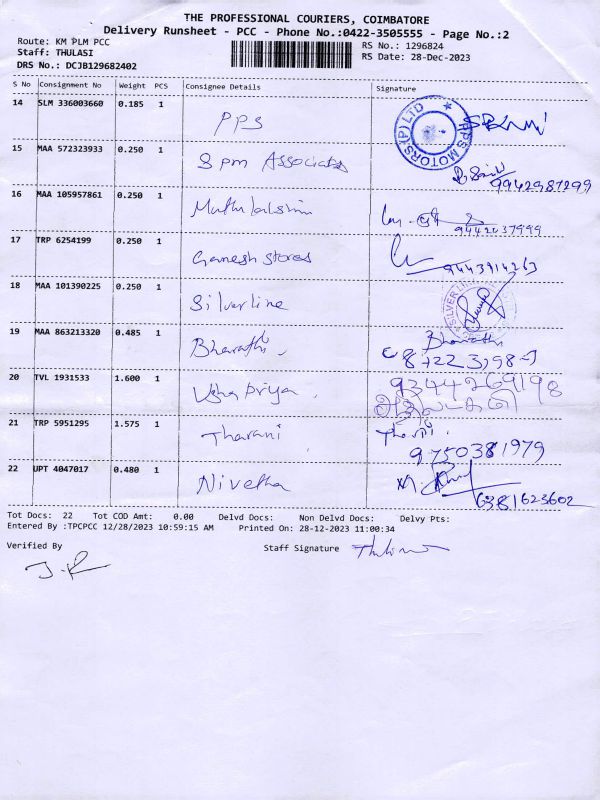 THE PROFESSIONAL COURIERS, COIMBATORE
Delivery Runsheet - PCC - Phone No.:0422-3505555 - Page No.:2
Route: KM PLM PCC RS No.: 1296824
Staff: THULASI RS Date: 28-Dec-2023
DRS No.: DCJB129682402
S No Consignment No Weight PCS Consignee Details Signature
14 SLM 336003660 0.185 1 PPS PPS MOTORS (P) LTD
15 MAA 572323933 0.250 1 Spm Associates 9942987299
16 MAA 105957861 0.250 1 Muthulakshmi 9442037999
17 TRP 6254199 0.250 1 Ganesh stores 9443914263
18 MAA 101390225 0.250 1 Silverline SILVER
19 MAA 863213320 0.485 1 Bharathi Bharathi
20 TVL 1931533 1.600 1 Usha priya 9344269198
21 TRP 5951295 1.575 1 Tharani 9750381979
22 UPT 4047017 0.480 1 Nivetha 6381623602
Tot Docs: 22 Tot COD Amt: 0.00 Delvd Docs: Non Delvd Docs: Delvy Pts:
Entered By :TPCPCC 12/28/2023 10:59:15 AM Printed On: 28-12-2023 11:00:34
Verified By Staff Signature